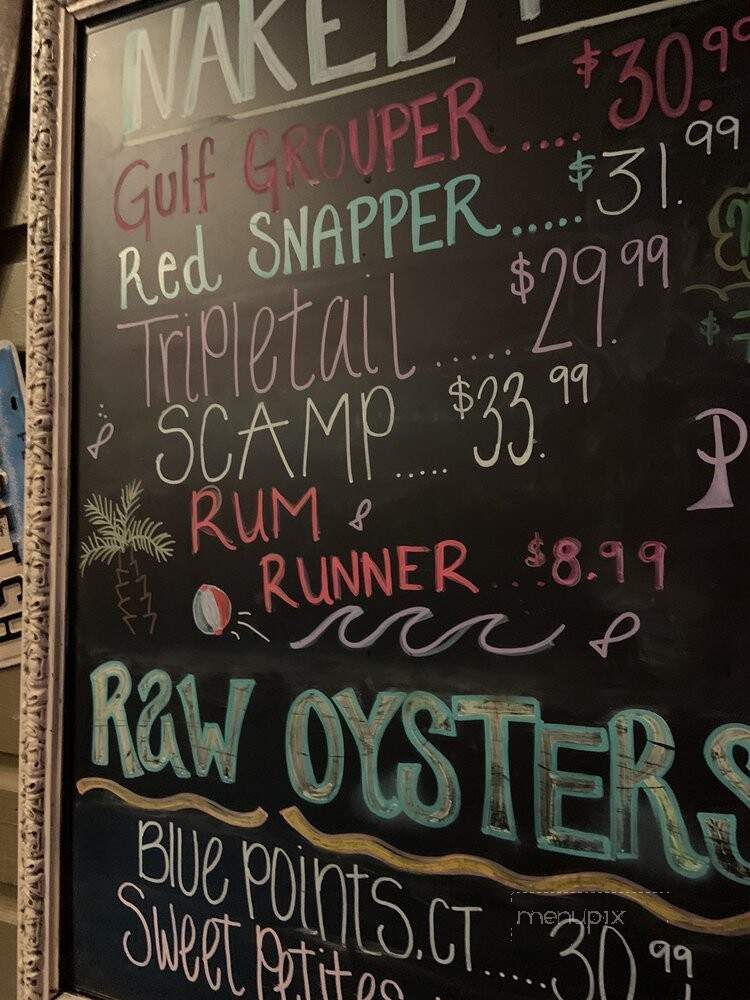 NAKED
Gulf GROUPER .... $30.99
Red SNAPPER ..... $31.99
Tripletail ...... $29.99
SCAMP ..... $33.99
RUM
RUNNER ... $8.99
RAW OYSTERS
BLUE POINTS.CT ..... 30.99
Sweet Petites
menupix